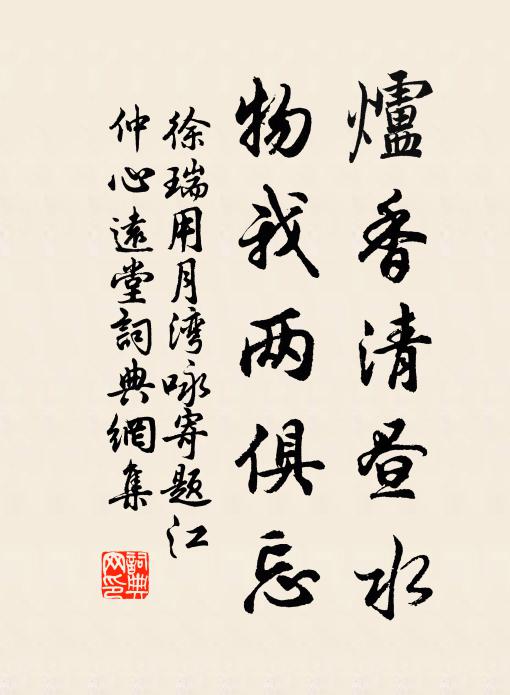 爐香清昼水
物我两俱忘
徐瑞用月湾咏寄题江
仲心遠堂詞典網集
詞典
网印